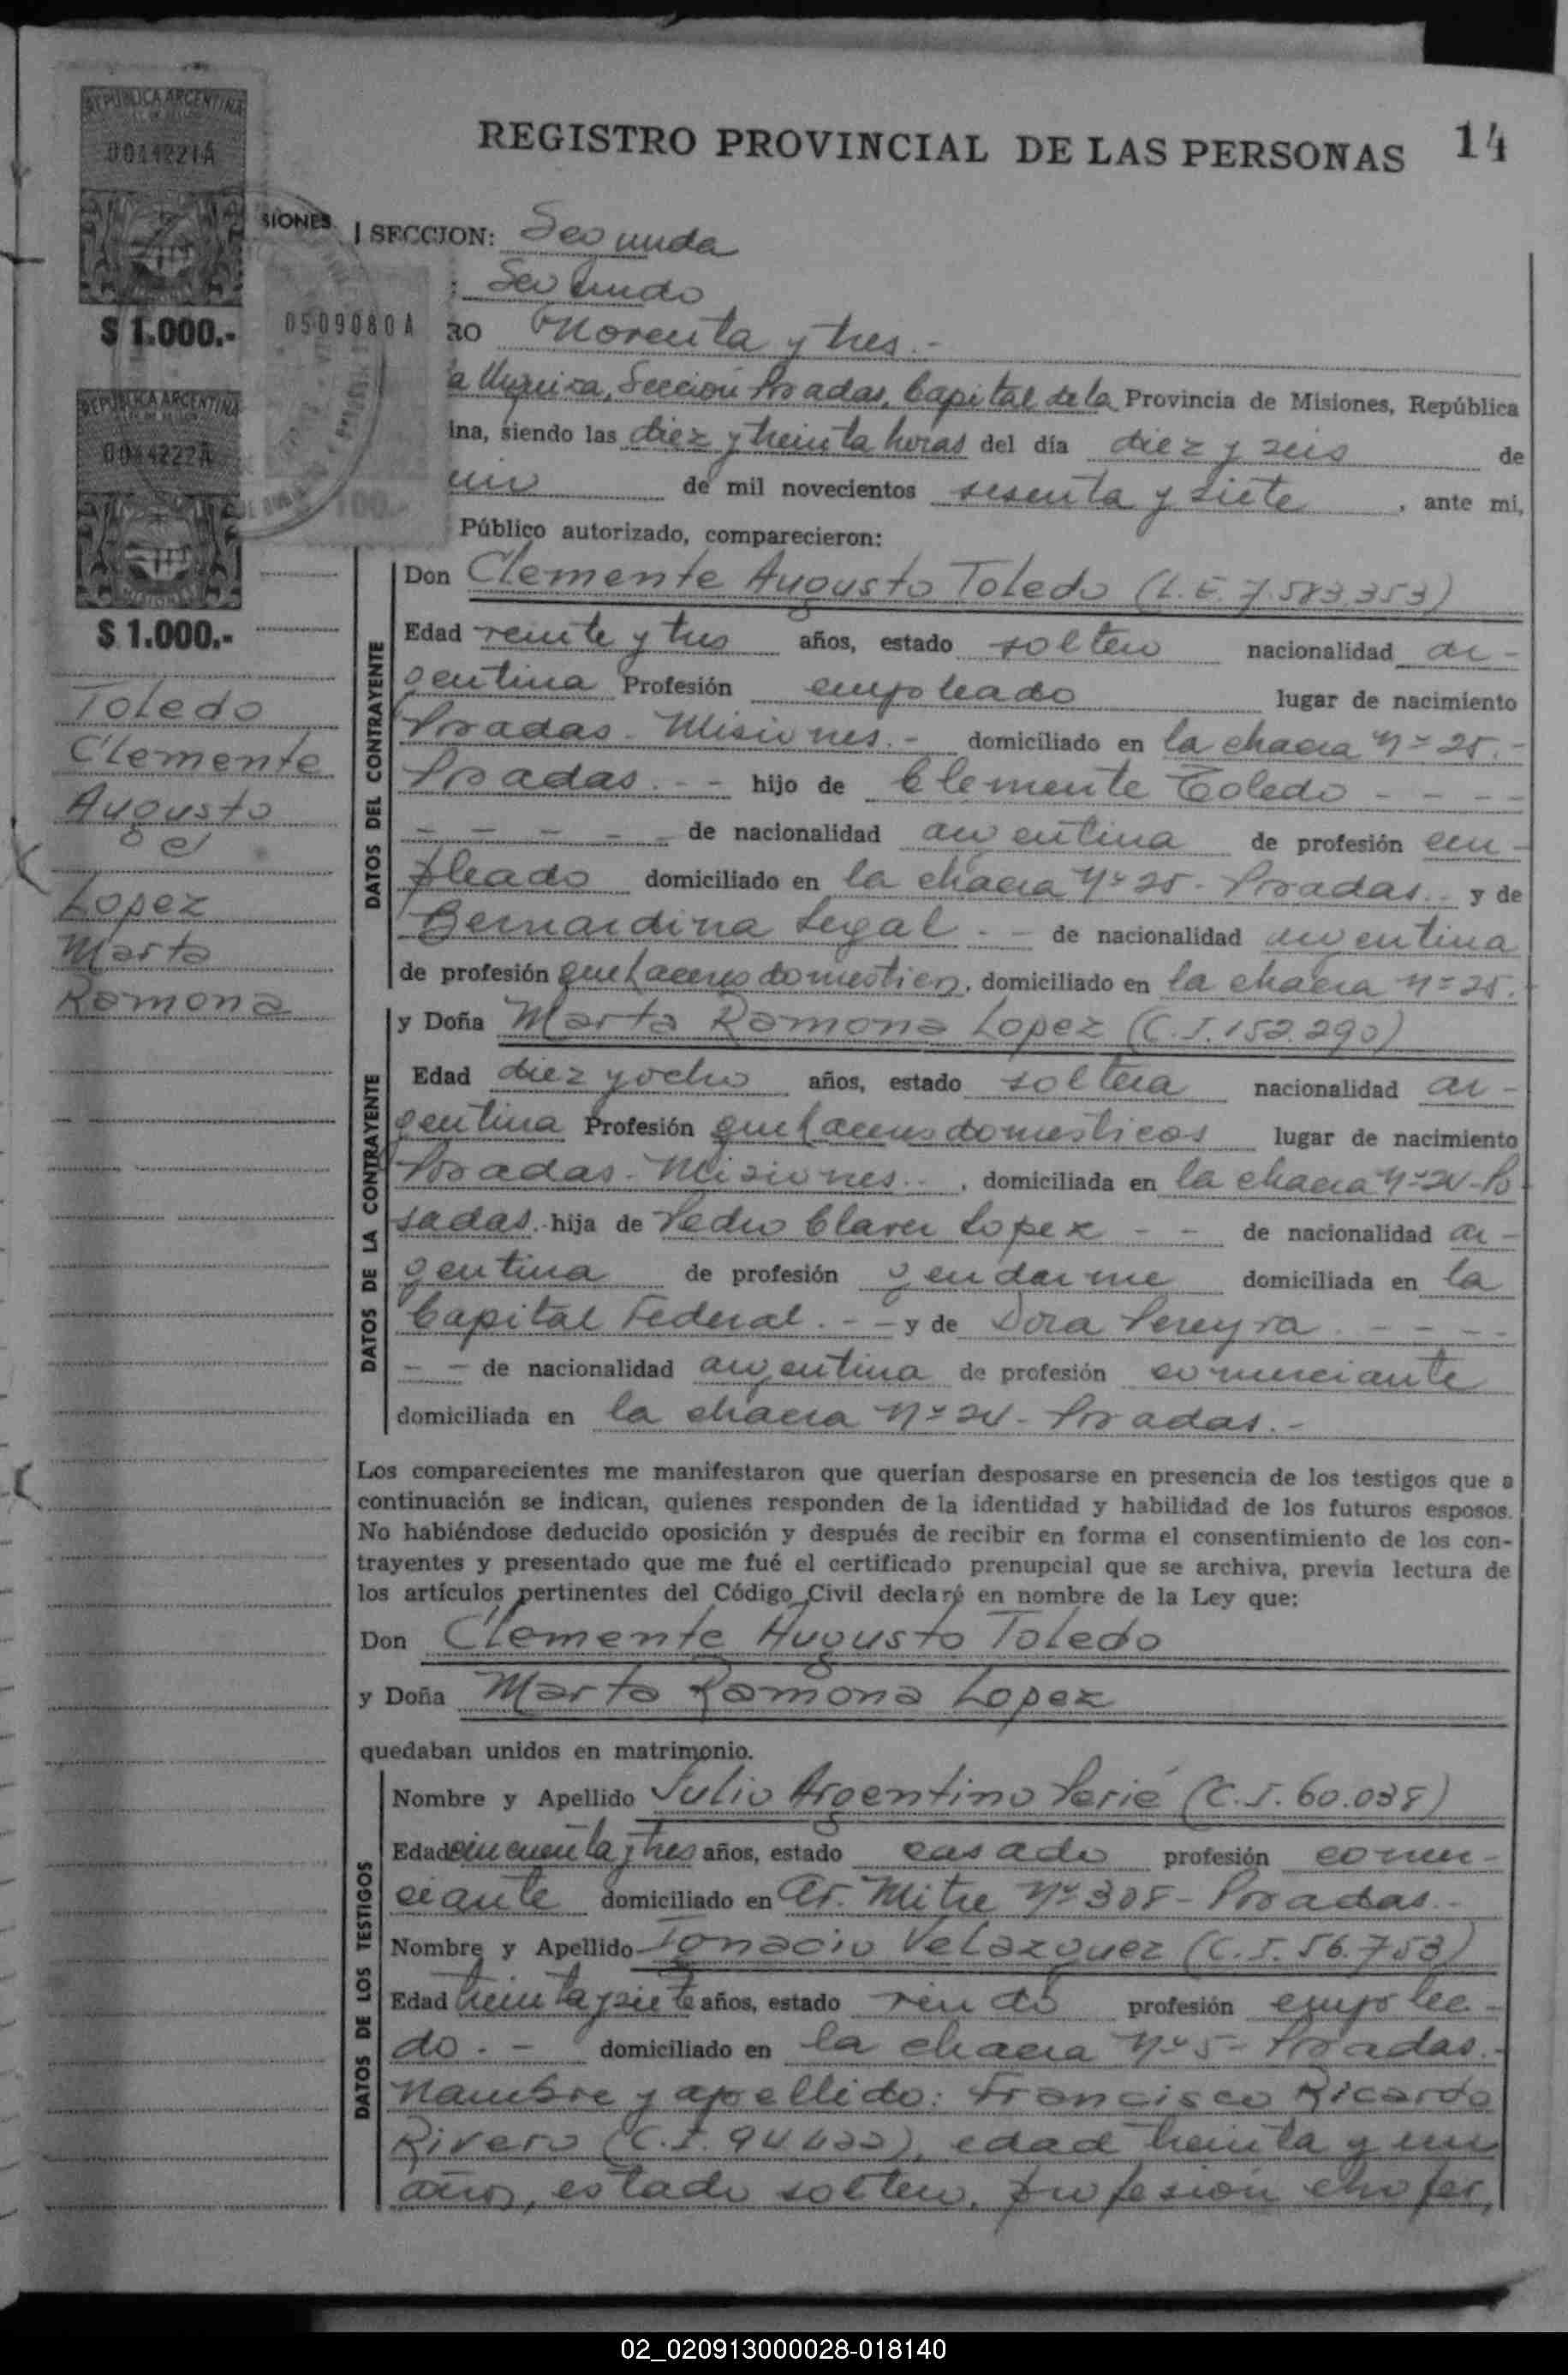 REGISTRO PROVINCIAL DE LAS PERSONAS 14
REPUBLICA ARGENTINA
0044221A
$ 1.000.-
SIONES
0509080A
100.-
REPUBLICA ARGENTINA
0044222A
MISIONES
$ 1.000.-
Toledo
Clemente
Augusto
c/
Lopez
Marta
Ramona
SECCION: Segunda
: Segundo
RO Noventa y tres.-
a Urquiza, Sección Posadas, Capital de la Provincia de Misiones, República
ina, siendo las diez y treinta horas del día diez y seis de
de mil novecientos sesenta y siete, ante mi,
Público autorizado, comparecieron:
DATOS DEL CONTRAYENTE
Don Clemente Augusto Toledo (L.E. 7.583.353)
Edad veinte y tres años, estado soltero nacionalidad ar-
gentina Profesión empleado lugar de nacimiento
Posadas - Misiones.- domiciliado en la chacra Nº 25.-
Posadas. - - hijo de Clemente Toledo - - - -
- - - - - de nacionalidad argentina de profesión em-
pleado domiciliado en la chacra Nº 25 - Posadas.. y de
Bernardina Legal. - - de nacionalidad argentina
de profesión quehaceres domesticos, domiciliado en la chacra Nº 25.-
DATOS DE LA CONTRAYENTE
y Doña Marta Ramona Lopez (C.I. 152.290)
Edad diez y ocho años, estado soltera nacionalidad ar-
gentina Profesión quehaceres domesticos lugar de nacimiento
Posadas - Misiones.. , domiciliada en la chacra Nº 24 - Po
sadas.- hija de Pedro Claver Lopez - - de nacionalidad ar-
gentina de profesión gendarme domiciliada en la
Capital Federal. - - y de Dora Pereyra. - - - -
- - de nacionalidad argentina de profesión comerciante
domiciliada en la chacra Nº 24 - Posadas.-
Los comparecientes me manifestaron que querían desposarse en presencia de los testigos que a
continuación se indican, quienes responden de la identidad y habilidad de los futuros esposos.
No habiéndose deducido oposición y después de recibir en forma el consentimiento de los con-
trayentes y presentado que me fué el certificado prenupcial que se archiva, previa lectura de
los artículos pertinentes del Código Civil declaré en nombre de la Ley que:
Don Clemente Augusto Toledo
y Doña Marta Ramona Lopez
quedaban unidos en matrimonio.
DATOS DE LOS TESTIGOS
Nombre y Apellido Julio Argentino Perié (C.I. 60.038)
Edad cincuenta y tres años, estado casado profesión comer-
ciante domiciliado en Av. Mitre Nº 308 - Posadas.-
Nombre y Apellido Ignacio Velazquez (C.I. 56.753)
Edad treinta y siete años, estado viudo profesión emplea-
do. - domiciliado en la chacra Nº 5 - Posadas.-
Nombre y apellido: Francisco Ricardo
Rivero (C.I. ), edad treinta y un
años, estado soltero, profesión chofer,
02_020913000028-018140